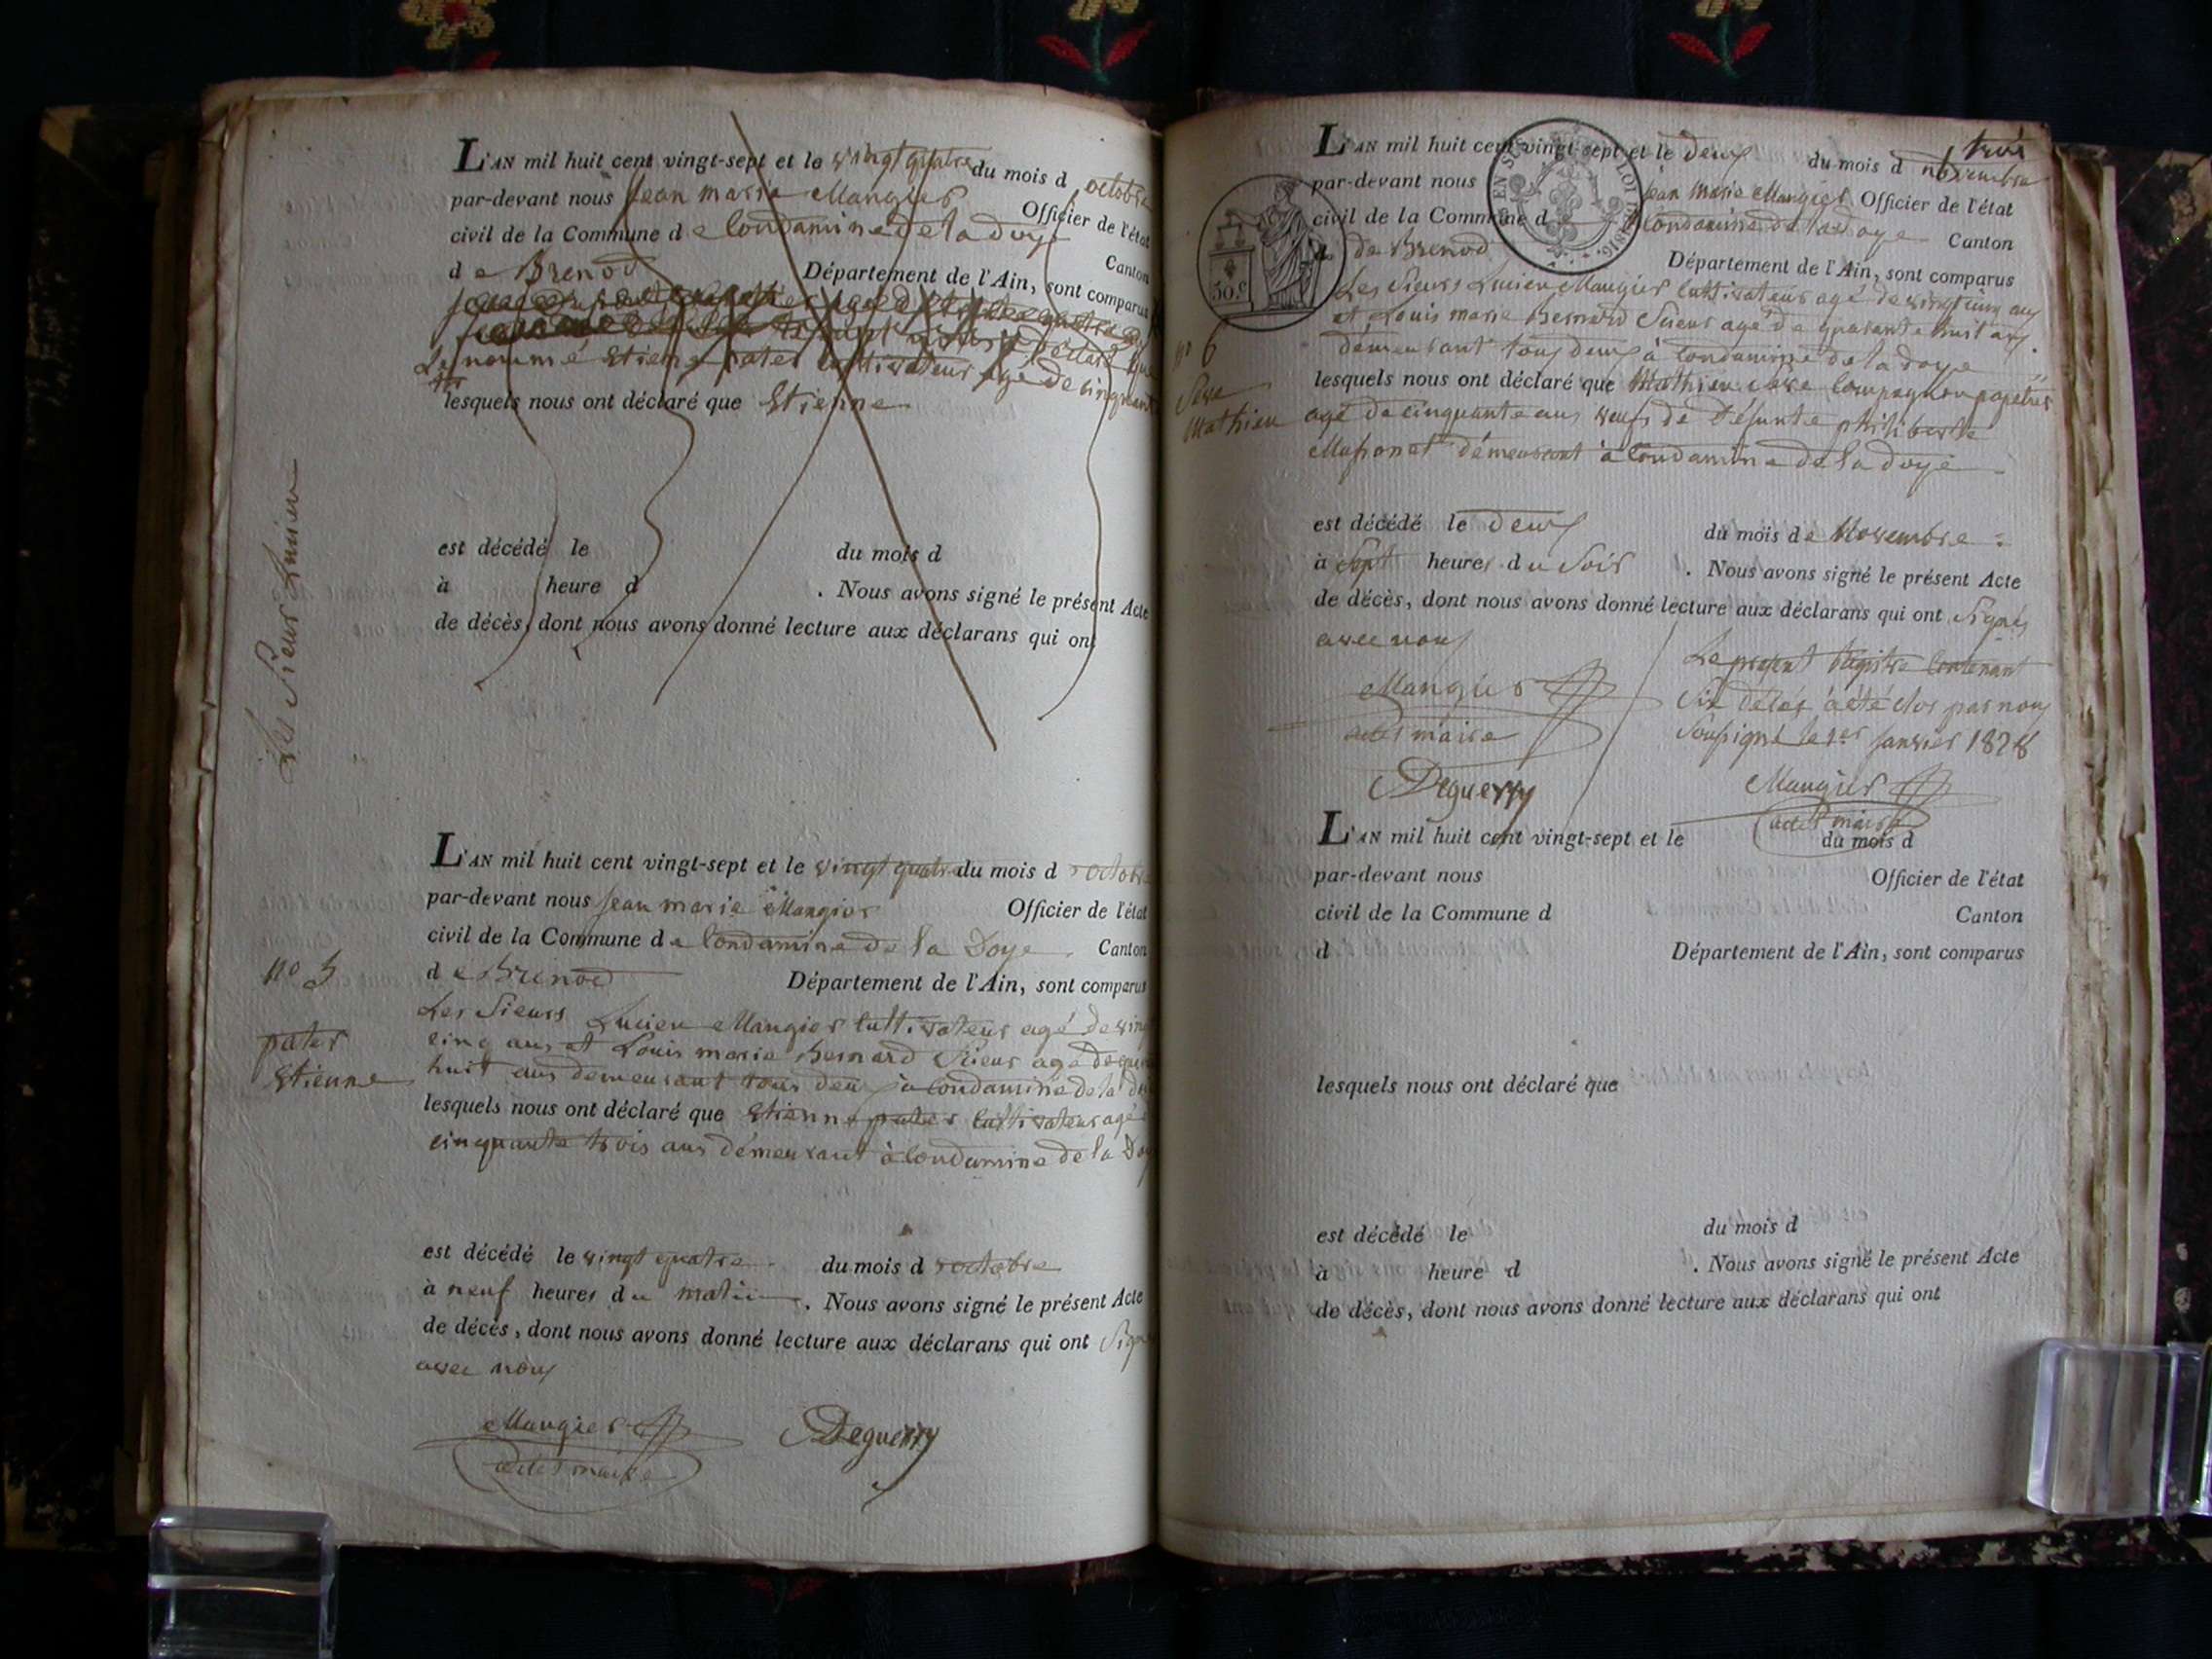 L'AN mil huit cent vingt-sept et le vingt quatre du mois d'octobre
par-devant nous Jean marie Mangier Officier de l'état
civil de la Commune de Condamine de la doye Canton
de Brenod Département de l'Ain, sont comparus
Le nommé Etienne pater cultivateur agé de cinquante
lesquels nous ont déclaré que Etienne
est décédé le du mois d
à heure d . Nous avons signé le présent Acte
de décès, dont nous avons donné lecture aux déclarans qui ont
Les Sieur Lucien
L'AN mil huit cent vingt-sept et le vingt quatre du mois d'octobre
par-devant nous Jean marie Mangier Officier de l'état
civil de la Commune de Condamine de la Doye Canton
de Brenod Département de l'Ain, sont comparus
n° 5
pater
Etienne
Les Sieurs Lucien Mangier cultivateur agé de vingt
cinq ans et Louis marie Bernard Scieur agé de
huit ans demeurant tous deux à Condamine de la
lesquels nous ont déclaré que Etienne pater cultivateur agé
cinquante trois ans demeurant à Condamine de la Doy
est décédé le vingt quatre du mois d'octobre
à neuf heures du matin. Nous avons signé le présent Acte
de décès, dont nous avons donné lecture aux déclarans qui ont Signé
avec nous
Mangier Deguerry
adjt maire
trois
L'AN mil huit cent vingt-sept et le deux du mois de novembre
par-devant nous Jean marie Mangier Officier de l'état
civil de la Commune de Condamine de la doye Canton
de Brenod Département de l'Ain, sont comparus
50.c
LOI DE 1816.
n° 6
Seve
Mathieu
Les Sieurs Lucien Mangier cultivateur agé de vingt cinq ans
et Louis marie Bernard Scieur agé de quarante huit ans
démeurant tous deux à Condamine de la doye
lesquels nous ont déclaré que Mathieu Seve Compagnon papetier
agé de cinquante ans veuf de défunte philiberte
Massonet démeurant à Condamine de la doye
est décédé le deux du mois de Novembre
à Sept heures du Soir . Nous avons signé le présent Acte
de décès, dont nous avons donné lecture aux déclarans qui ont Signés
avec nous
Mangier
adjt maire
Deguerry
Le present Registre Contenant
Six décés à été clos par nous
Soussigné le 1er Janvier 1828
Mangier
adjt maire
L'AN mil huit cent vingt-sept et le du mois d
par-devant nous Officier de l'état
civil de la Commune d Canton
d Département de l'Ain, sont comparus
lesquels nous ont déclaré que
est décédé le du mois d
à heure d . Nous avons signé le présent Acte
de décès, dont nous avons donné lecture aux déclarans qui ont